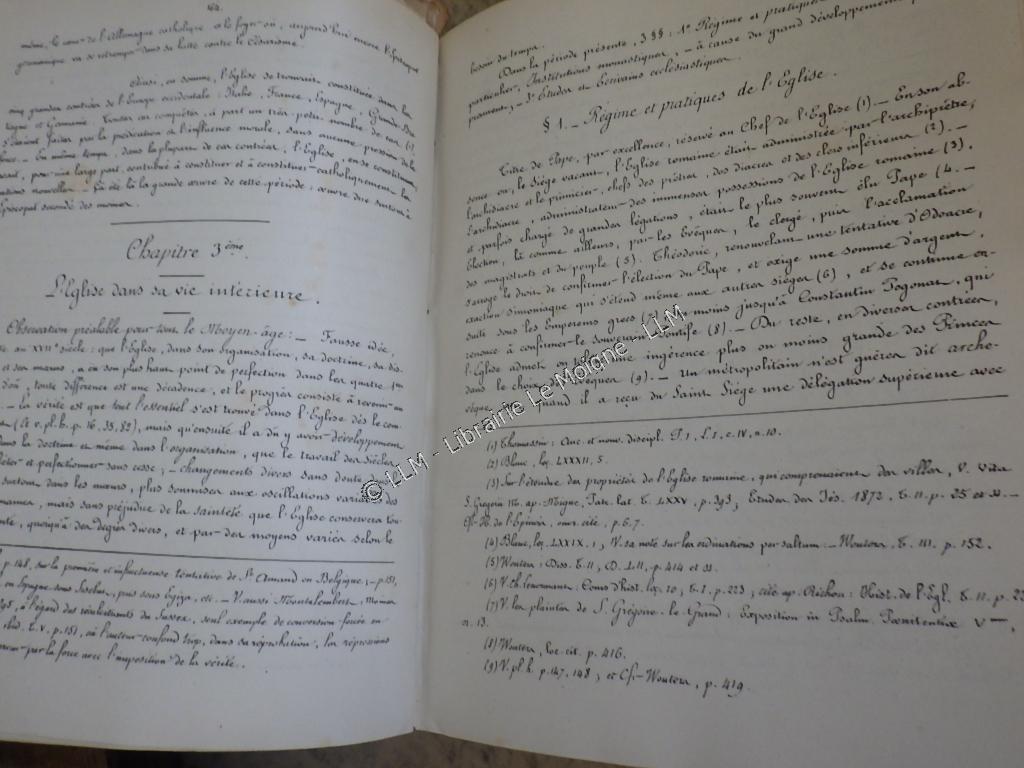 64.
même, le cœur de l'Allemagne catholique et le foyer où, aujourd'hui encore l'épiscopat
germanique va se retremper dans sa lutte contre le Césarisme.
Ainsi, en somme, l'Eglise se trouvait constituée dans les
cinq grandes contrées de l'Europe occidentale: Italie, France, Espagne, Grande-Bre
tagne et Germanie. Toutes ces conquêtes, à part un très petit nombre de cas (1),
s'étaient faites par la prédication et l'influence morale, sans aucune pression de la
force. - En même temps, dans la plupart de ces contrées, l'Eglise, en se constituant,
avait, pour une large part, contribué à constituer et à constituer catholiquement les
nations nouvelles. - Çà été là la grande œuvre de cette période, œuvre due surtout à
l'Episcopat secondé des moines.
Chapitre 3ème.
L'Eglise dans sa vie intérieure.
Observation préalable pour tout le Moyen-âge: - Fausse idée,
au XVIIe siècle: que l'Eglise, dans son organisation, sa doctrine, sa dis-
et ses mœurs, a eu son plus haut point de perfection dans les quatre
d'où, toute différence est une décadence, et le progrès consiste à revenir au
- La vérité est que tout l'essentiel s'est trouvé dans l'Eglise dès le com-
(cf. v. pl. h. p. 16, 33, 85), mais qu'ensuite il a dû y avoir développement
dans la doctrine et même dans l'organisation, que le travail des siècles
et perfectionner sans cesse; - changements divers sans doute,
surtout dans les mœurs, plus soumises aux oscillations variées des
humaines, mais sans préjudice de la sainteté que l'Eglise conservera tou-
quoiqu'à des degrés divers, et par des moyens variés selon le
p. 148, sur la première et infructueuse tentative de St Amand en Belgique; - p. 151,
en Espagne sous Sisebut, puis sous Egiza, etc. - V. aussi Montalembert, Moines
à l'égard des récalcitrants du Sussex, seul exemple de conversion forcée en
ibid. t. V. p. 151, où l'auteur confond trop, dans sa réprobation, la répression
erreur par la force avec l'imposition de la vérité.
besoin du temps.
Dans la période présente, 3 §§: 1° Régime et pratiques
particulier, Institutions monastiques, - à cause du grand développement
prennent; - 3° Etudes et Ecrivains ecclésiastiques.
§ 1. - Régime et pratiques de l'Eglise.
Titre de Pape, par excellence, réservé au Chef de l'Eglise (1). - En son ab-
sence ou, le Siège vacant, l'Eglise romaine était administrée par l'archiprêtre,
l'archidiacre et le primicier, chefs des prêtres, des diacres et des clercs inférieurs (2). -
L'archidiacre, administrateur des immenses possessions de l'Eglise romaine (3),
et parfois chargé de grandes légations, était le plus souvent élu Pape (4. -
Election, là comme ailleurs, par les Evêques, le clergé, puis l'acclamation
des magistrats et du peuple (5). Théodoric, renouvelant une tentative d'Odoacre,
s'arroge le droit de confirmer l'élection du Pape, et exige une somme d'argent,
exaction simoniaque qui s'étend même aux autres sièges (6), et se continue en-
suite sous les Empereurs grecs (7), du moins jusqu'à Constantin Pogonat, qui
renonce à confirmer le souverain Pontife (8). - Du reste, en diverses contrées,
l'Eglise admet ou tolère une ingérence plus ou moins grande des Princes
dans le choix des Evêques (9). - Un métropolitain n'est guères dit arche-
vêque que quand il a reçu du Saint Siège une délégation supérieure avec
(1) Thomassin: Anc. et nouv. discipl. T. 1, L. 1, c. IV, n. 10.
(2) Blanc, leç. LXXXII, 5.
(3) Sur l'étendue des propriétés de l'Eglise romaine, qui comprenaient des villes, V. Vita
S. Gregorii M. ap. Migne, Patr. lat. t. LXXV, p. 393; Etudes des Jés. 1872, t. 11. p. 25 et ss. -
Cf. H. de l'Epinois, ouvr. cité, p. 6. 7.
(4) Blanc, leç. LXXIX, 1; IV. sa note sur les ordinations per saltum: - Wouters, t. 111. p. 152.
(5) Wouters: Diss. t. 11, D. L11, p. 414 et ss.
(6) V. Ch. Lenormant: Cours d'hist. leç. 20; t. 1. p. 223; cité ap. Richou: Hist. de l'Egl. t. 11. p. 22
(7) V. les plaintes de S. Grégoire-le-Grand: Expositio in Psalm. Pœnitentiæ Vum,
n. 13.
(8) Wouters, loc. cit. p. 416.
(9) V. pl. h. p. 147, 148; et Cf. - Wouters, p. 419.
© LLM - Librairie Le Moigne - LLM